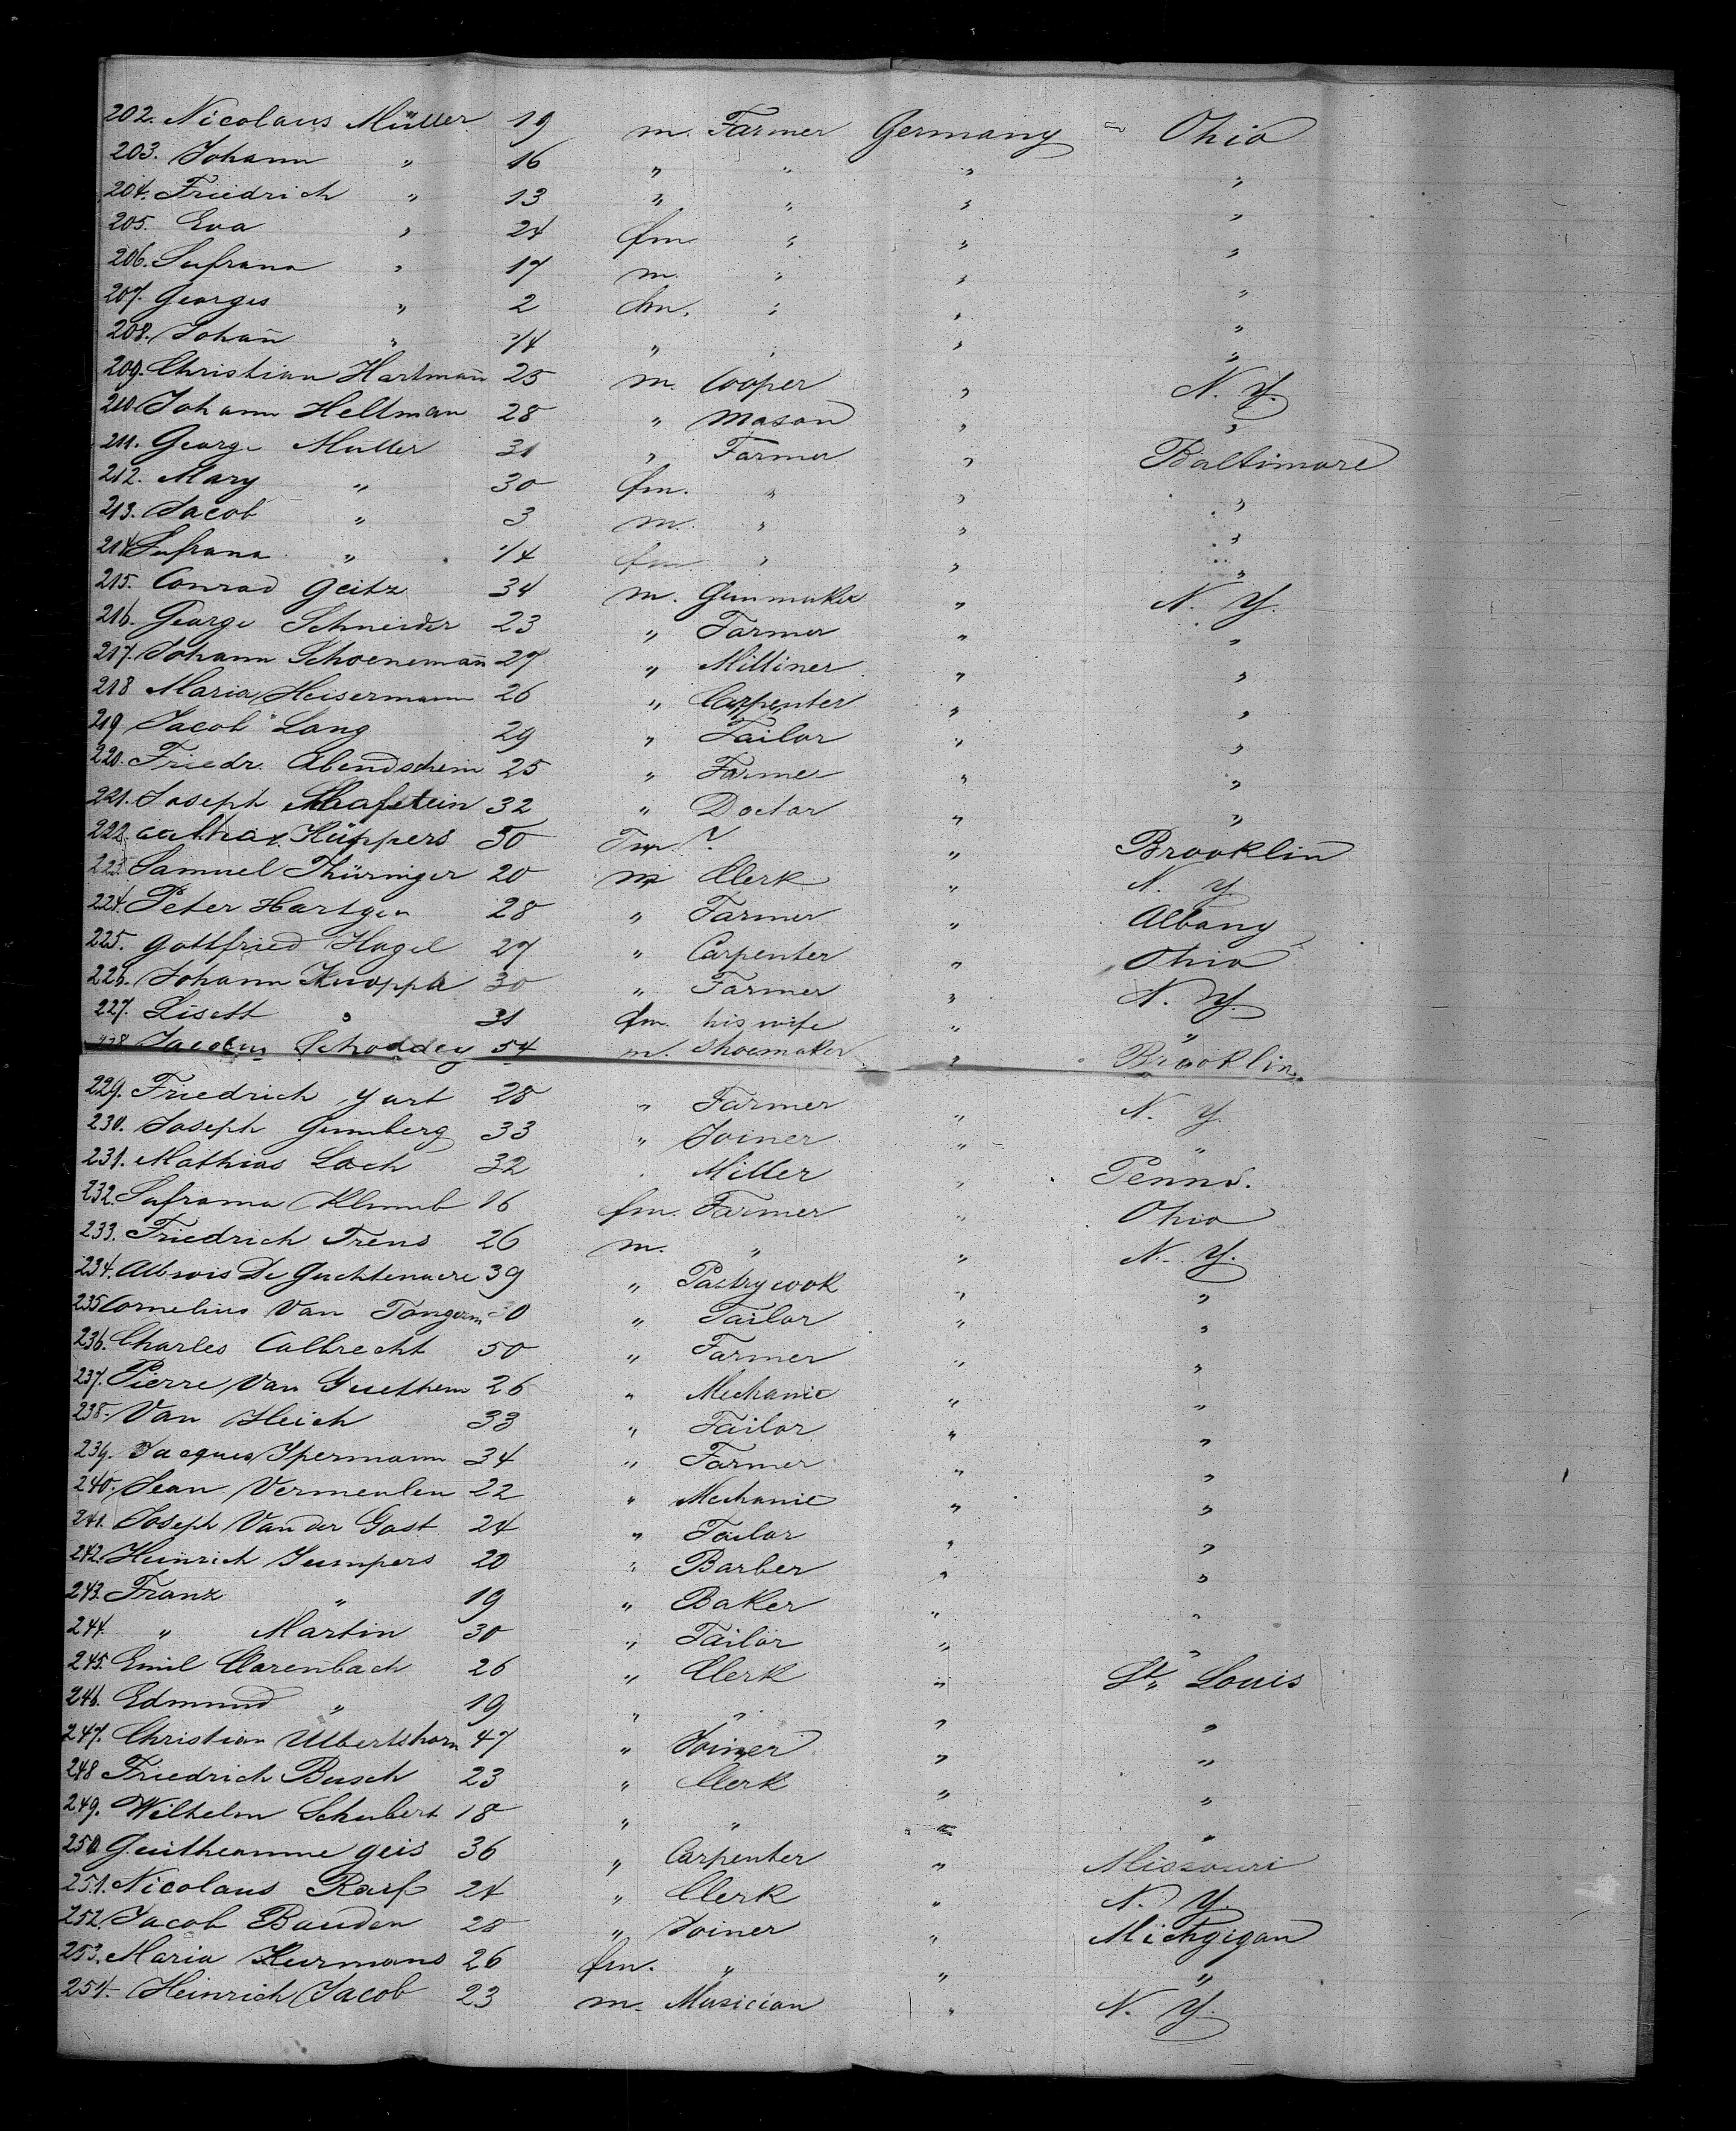 202. Nicolaus Müller 19 m. Farmer Germany = Ohio
203. Johann " 16 " " " "
204. Friedrich " 13 " " " "
205. Eva " 24 fm " " "
206. Sufrana " 17 m. " " "
207. Georges " 2 fm. " " "
208. Johan̄ " 1/4 " " " "
209. Christian Hartman̄ 25 m. Cooper " N. Y.
210. Johann Heltman 28 " Mason " "
211. George Muller 31 " Farmer " Baltimore
212. Mary " 30 fm. " " "
213. Jacob " 3 m. " " "
214 Sufrana " 1/4 fm " " "
215. Conrad Geitz 34 m. Gunmaker " N. Y.
216. George Schneider 23 " Farmer " "
217. Johann Schoeneman̄ 27 " Milliner " "
218 Maria Heisermann 26 " Carpenter " "
219 Jacob Lang 29 " Tailor " "
220. Friedr. Abendschein 25 " Farmer " "
221. Joseph 32 " Doctor " "
222. Küppers 50 " Brooklin
223. Samuel Thüringer 20 m Clerk " N. Y
224. Peter Hartgen 28 " Farmer " Albany
225. Gottfried Hagel 27 " Carpenter " Ohio
226. Johann 30 " Farmer " N. Y.
227. Lisett " 31 fm. his wife " "
228 Jacobus Schoddey 54 m. Shoemaker " Brooklin
229. Friedrich Yart 28 " Farmer " N. Y.
230. Joseph Gumberg 33 " Joiner " "
231. Mathias Loch 32 " Miller " Penns.
232. Sufrana Klumb 16 fm. Farmer " Ohio
233. Friedrich Trens 26 m. " " N. Y.
234. De Guchtenaere 39 " Pastrycook " "
235 Cornelius Van " Tailor " "
236. Charles Calbrecht 50 " Farmer " "
237. Pierre Van 26 " Mechanic " "
238. Van Heich 33 " Tailor " "
239. Jacques Ipermann 34 " Farmer " "
240. Jean Vermeulen 22 " Mechanic " "
241. Joseph Van der Gast 24 " Tailor " "
242. Heinrich Jumpers 20 " Barber " "
243. Franz " 19 " Baker " "
244. " Martin 30 " Tailor " "
245. Emil Clarenbach 26 " Clerk " St. Louis
246. Edmund " 19 " " " "
247. Christian Ulbertshorn 47 " Joiner " "
248 Friedrich Busch 23 " Clerk " "
249. Wilhelm Schubert 18 " " " "
250. Geis 36 " Carpenter " Missouri
251. Nicolaus 24 " Clerk " N. Y.
252. Jacob Bauden 28 " Joiner " Michgigan
253. Maria Hurmans 26 fm. " " "
254. Heinrich Jacob 23 m. Musician " N. Y.